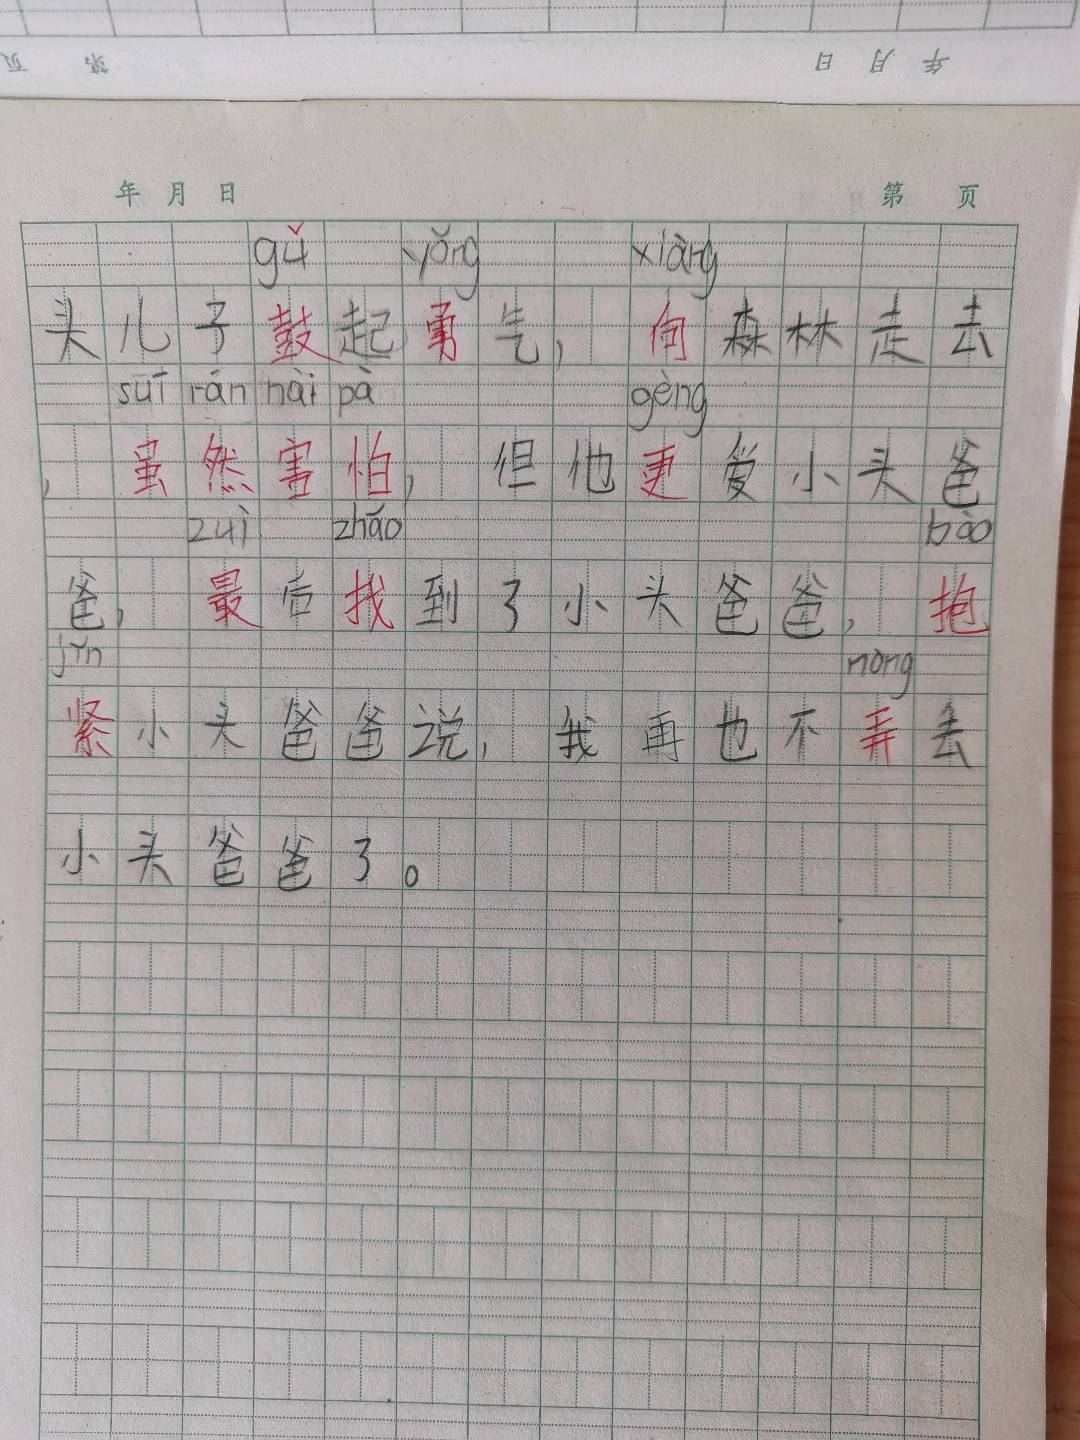 第 页 年 月 日
年 月 日 第 页
gǔ yǒng xiàng
头儿子鼓起勇气,向森林走去
suī rán hài pà gèng
,虽然害怕,但他更爱小头爸
zuì zhǎo bào
爸,最后找到了小头爸爸,抱
jǐn nòng
紧小头爸爸说,我再也不弄丢
小头爸爸了。